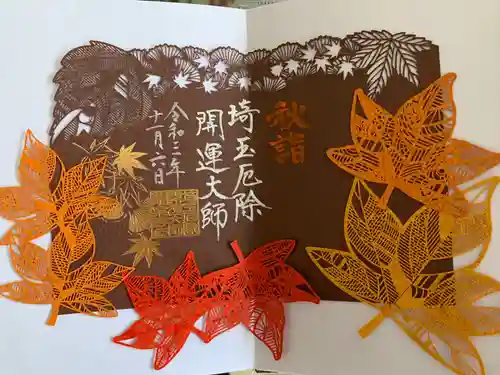 秋詣
埼玉厄除
開運大師
令和二年
十一月六日